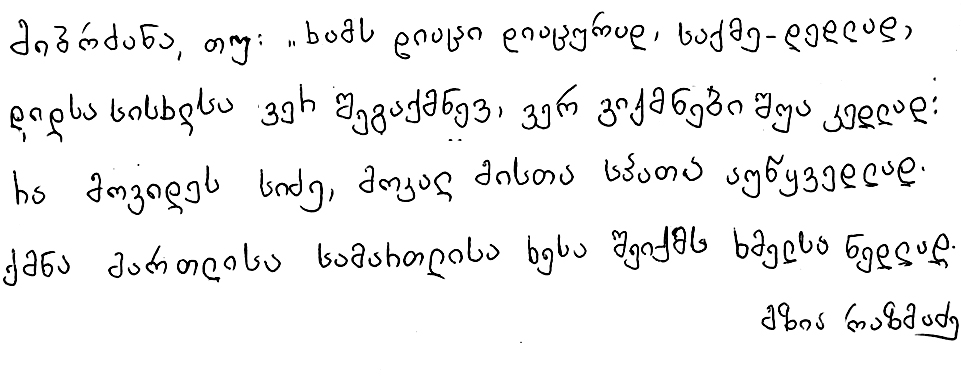 მიბრძანა, თუ: „ხამს დიაცი დიაცურად, საქმე-დედლად,
დიდსა სისხლსა ვერ შეგაქმნევ, ვერ ვიქმნები შუა კედლად:
რა მოვიდეს სიძე, მოკალ მისთა სპათა აუწყვედლად.
ქმნა მართლისა სამართლისა ხესა შეიქმს ხმელსა ნედლად.
მზია რაზმაძე